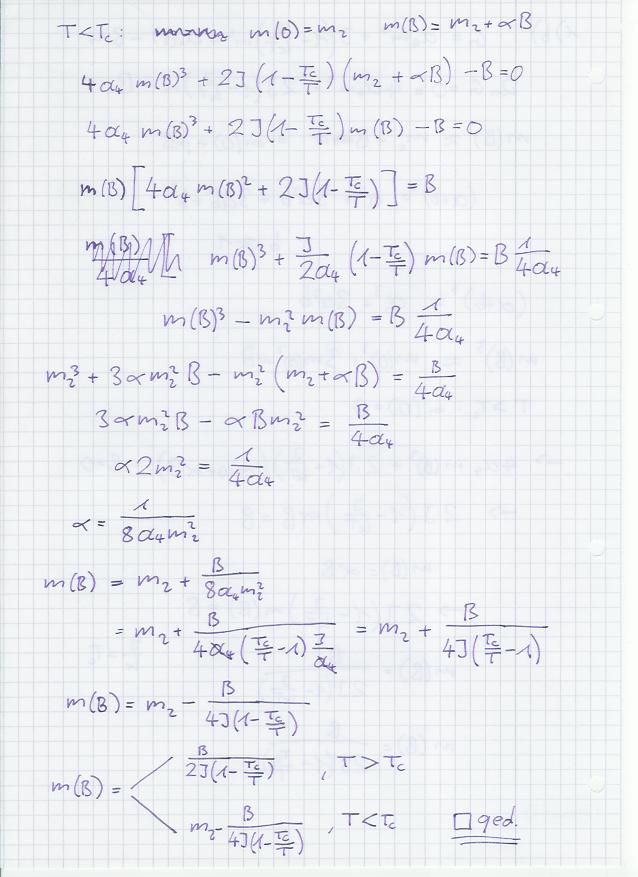 T<Tc: m(0)=m₂ m(B)=m₂+αB
4α₄ m(B)³ + 2J(1-Tc/T)(m₂+αB) -B=0
4α₄ m(B)³ + 2J(1-Tc/T)m(B) -B=0
m(B)[4α₄ m(B)² + 2J(1-Tc/T)] = B
m(B)³ + J/2α₄ (1-Tc/T) m(B) = B 1/4α₄
m(B)³ - m₂² m(B) = B 1/4α₄
m₂³ + 3αm₂²B - m₂²(m₂+αB) = B/4α₄
3αm₂²B - αBm₂² = B/4α₄
α2m₂² = 1/4α₄
α = 1/8α₄m₂²
m(B) = m₂ + B/8α₄m₂²
= m₂ + B/4α₄(Tc/T-1)J/α₄ = m₂ + B/4J(Tc/T-1)
m(B) = m₂ - B/4J(1-Tc/T)
m(B) = B/2J(1-Tc/T) , T>Tc
m₂- B/4J(1-Tc/T) , T<Tc □ qed.